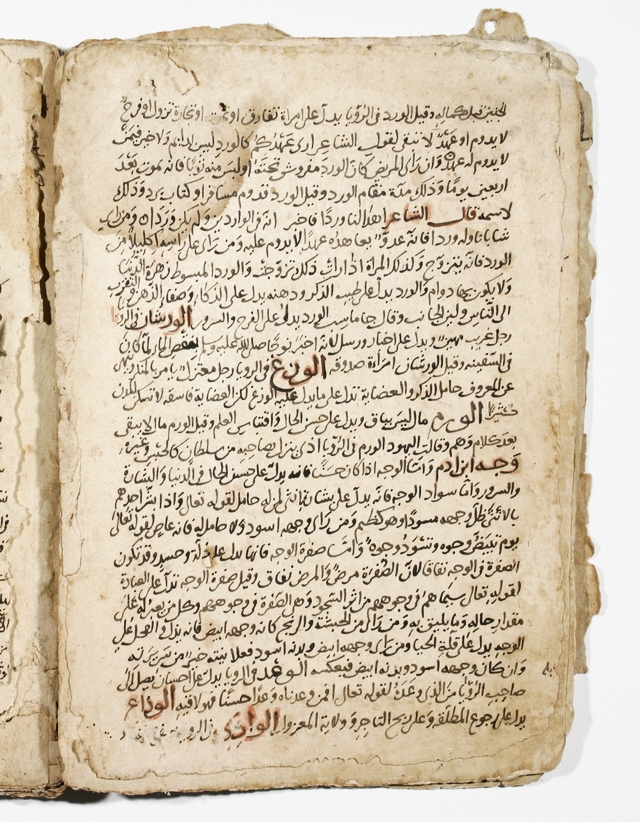 الجنين قبل كماله وقيل الورد في الرؤيا يدل على امراة تفارق او تجارة تزول او فرح
لا يدوم او عهد لا يبقى لقول الشاعر ارى عهدكم كالورد ليس بدايم ولا خير فيمن
لا يدوم له عهد وان راى المريض كان الورد مفروش تحته او لبس منه ثوبا فانه يموت بعد
اربعين يوما وذلك مدة مقام الورد وقيل الورد قدوم مسافر او كتاب يرد وذلك
لاسمه قال الشاعر
شابا ناوله وردا فانه عدو يعاهده عهدا لا يدوم عليه ومن راى على راسه اكليلا من
الورد فانه يتزوج وكذلك المراة اذا رات ذلك تزوجت والورد المبسوط زهرة الدنيا
ولا يكون بها دوام والورد يدل على طيب الذكر ودهنه يدل على الذكاء وصفاء الذهن والتقرب
الى الناس ولين الجانب وقال جاماسب الورد يدل على الفرح والسرور الورشان في الرؤيا
رجل غريب مهين ويدل على اخبار ورسل لانه اخبر نوحا صلى الله عليه وسلم بنقص الماء لما كان
في السفينة وقيل الورشان امراة صدوقة الوزغ في الرؤيا رجل معتزل يامر بالمنكر وينهى
عن المعروف خامل الذكر والعضاية تدل على ما يدل عليه الوزغ لكن العضاية فاسقة
الورم مال ليس بباق ويدل على حسن الحال واقتباس العلم وقيل الورم مال يبقى
بعد كلام وهم وقالت اليهود الورم في الرؤيا اذى ينزل بصاحبه من سلطان كالحبس وغيره
وجه ابن ادم واما الوجه اذا كان حسنا فانه يدل على حسن الحال في الدنيا والبشارة
والسرور واما سواد الوجه فانه يدل على بشارة بانثى لمن له حامل لقوله تعالى واذا بشر احدهم
بالانثى ظل وجهه مسودا وهو كظيم ومن راى وجهه اسود ولا حامل له فانه عاص لقوله تعالى
يوم تبيض وجوه وتسود وجوه واما صفرة الوجه فانها تدل على ذلة وحسد وقد تكون
الصفرة في الوجه نفاقا لان الصفرة مرض والمرض نفاق وقيل صفرة الوجه تدل على العبادة
لقوله تعالى سيماهم في وجوههم من اثر السجود وهي الصفرة في وجوههم وكل من يعبر له على
مقدار حاله وما يليق به ومن راى من الحبشة والزنج كانه وجهه ابيض فانه يدل
الوجه يدل على قلة الحيا ومن راى وجهه ابيض وبدنه اسود فعلانيته خير من سريرته
وان كان وجهه اسود وبدنه ابيض فبعكسه الوعد في الرؤيا يدل على احسان يصل الى
صاحب الرؤيا من الذي وعده لقوله تعالى افمن وعدناه وعدا حسنا فهو لاقيه الوداع
يدل على رجوع المطلقة وعلى ربح التاجر وولاية المعزول الوادي